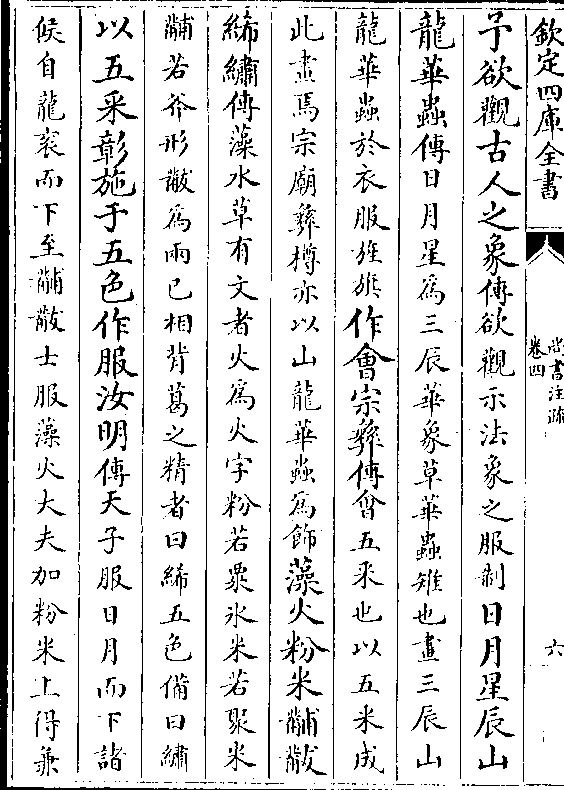 欽定四庫全書
尚書注疏
卷四
六
予欲觀古人之象傳欲觀示法象之服制日月星辰山
龍華蟲傳日月星為三辰華象草華蟲雉也畫三辰山
龍華蟲於衣服旌旗作會宗彝傳會五采也以五采成
此畫焉宗廟彝樽亦以山龍華蟲為飾藻火粉米黼黻
絺繡傳藻水草有文者火為火字粉若粟氷米若聚米
黼若斧形黻為兩已相背葛之精者曰絺五色備曰繡
以五采彰施于五色作服汝明傳天子服日月而下諸
侯自龍衮而下至黼黻士服藻火大夫加粉米上得兼